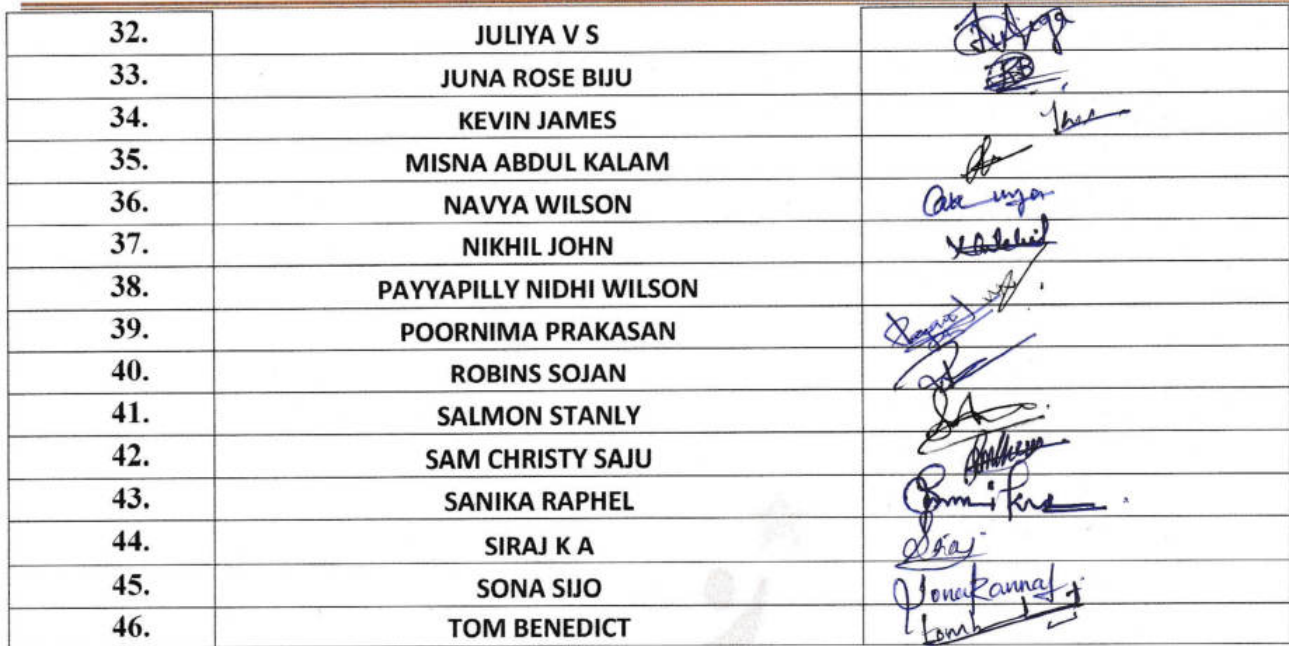 32. JULIYA V S
33. JUNA ROSE BIJU JRB
34. KEVIN JAMES
35. MISNA ABDUL KALAM
36. NAVYA WILSON
37. NIKHIL JOHN
38. PAYYAPILLY NIDHI WILSON
39. POORNIMA PRAKASAN
40. ROBINS SOJAN
41. SALMON STANLY
42. SAM CHRISTY SAJU
43. SANIKA RAPHEL
44. SIRAJ K A Siraj
45. SONA SIJO
46. TOM BENEDICT